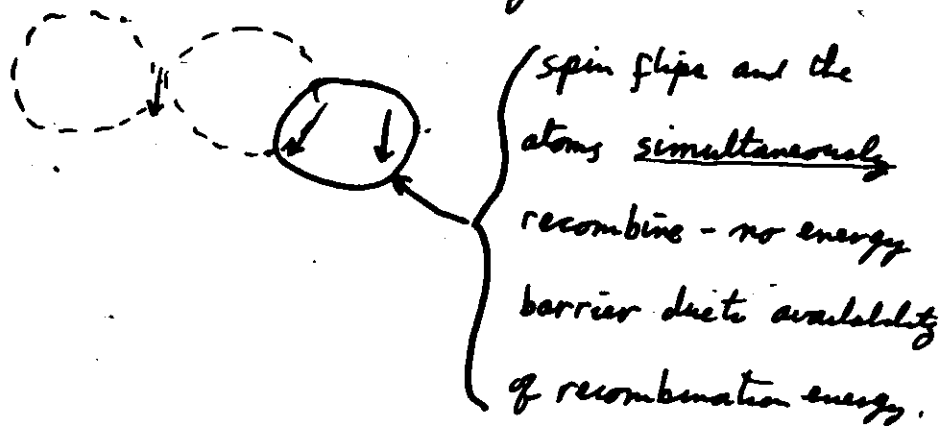 spin flips and the
atoms simultaneously
recombine - no energy
barrier due to availability
of recombination energy.